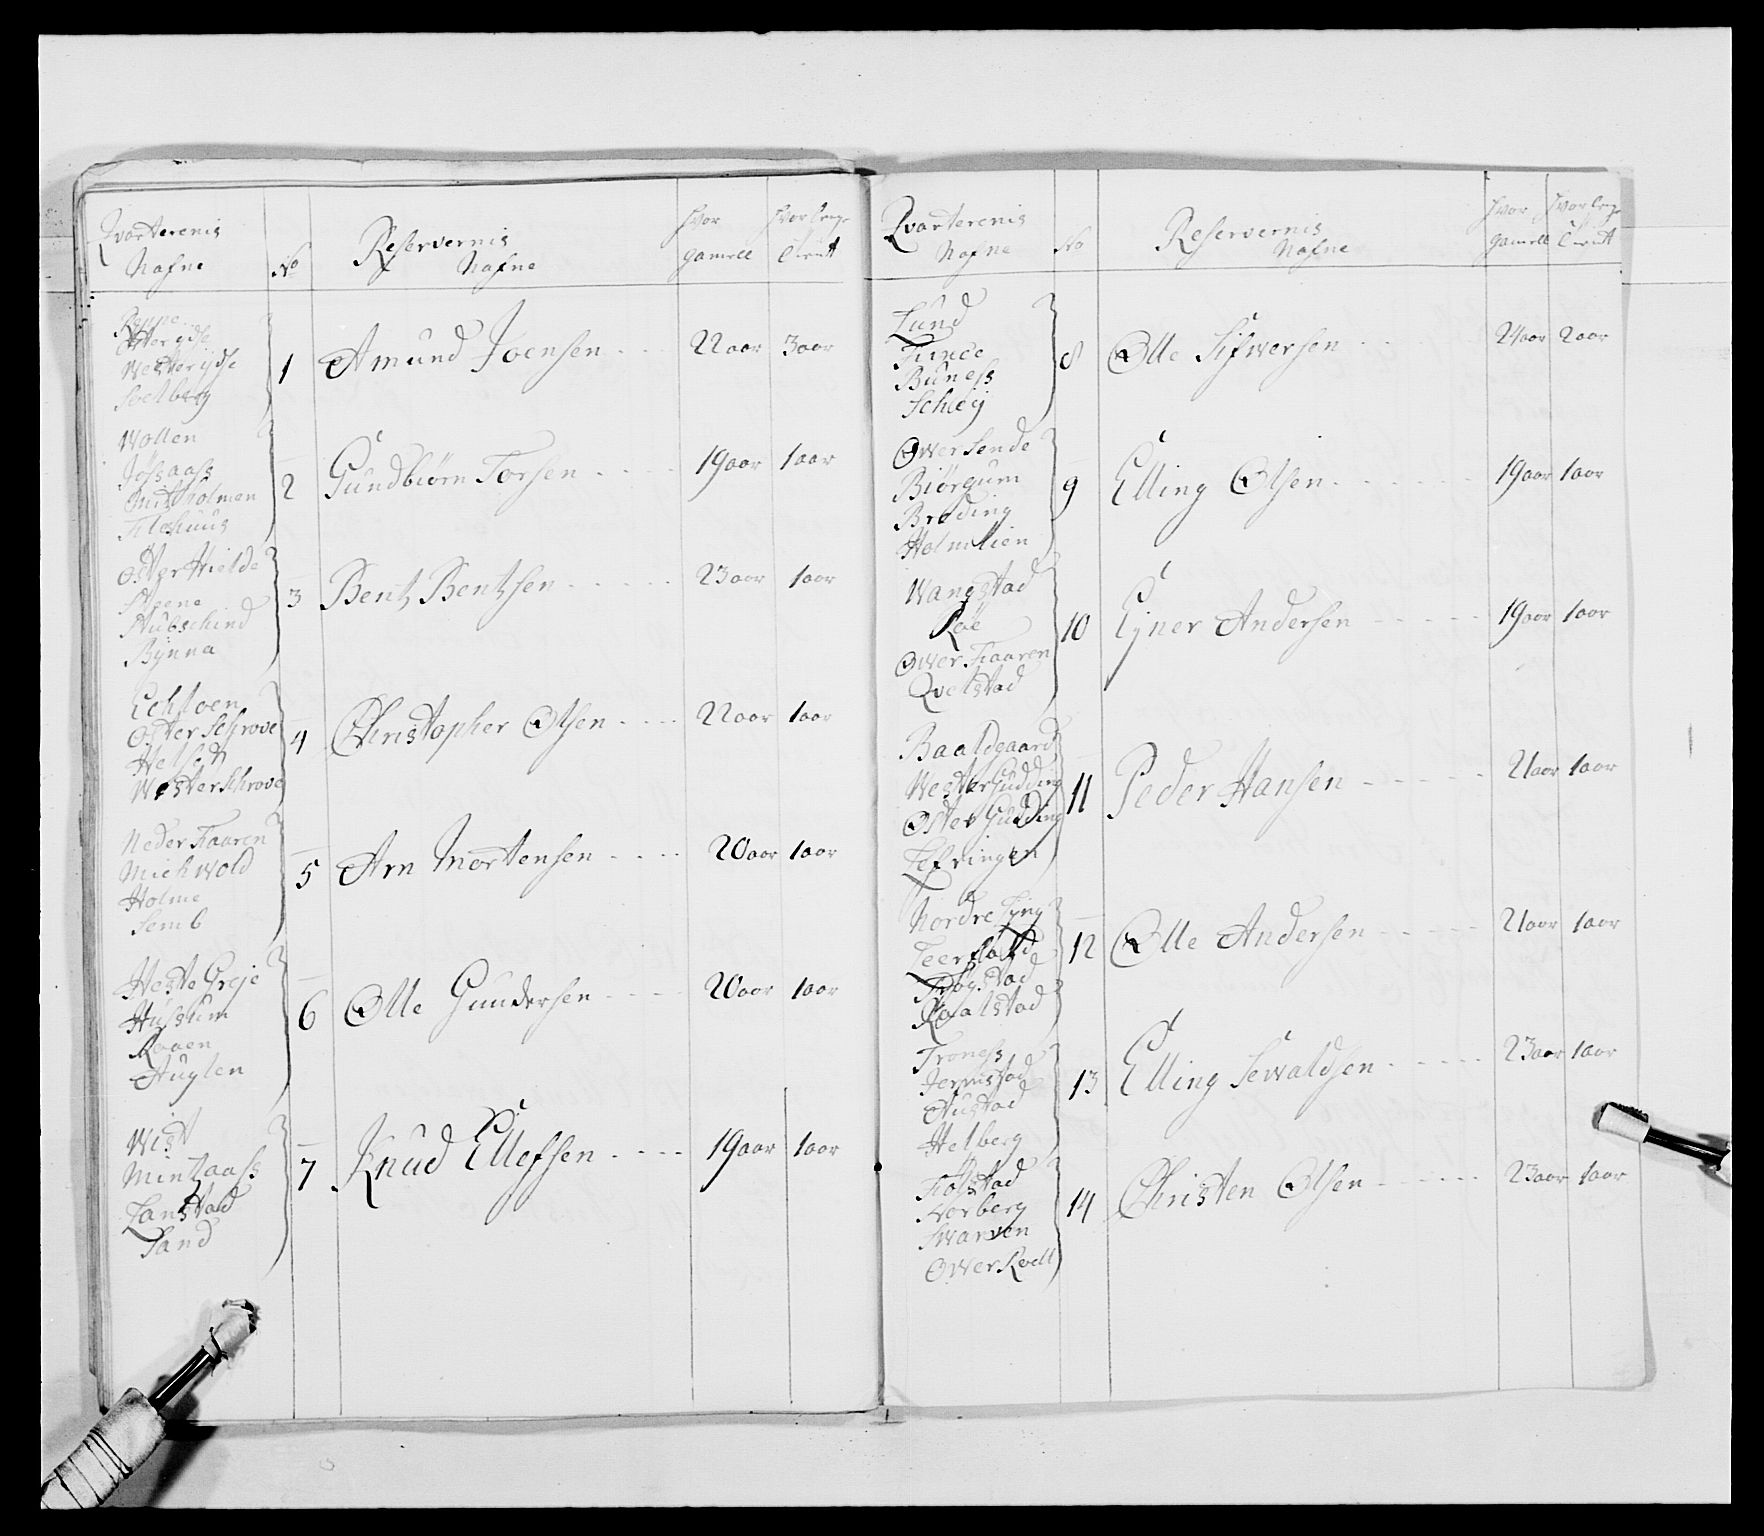 Qvarterenis Nafne No Reservernis Nafne Hvor gamell Hvor lenge tient
Reppe
Østerydse
Westerydse
Soelberg
1 Amund Joensen 22 aar 3 aar
Wollen
Jössaass
Mittholmen
Tilehuus
2 Gundbiørn Torsen 19 aar 1 aar
Øster Hielde
Steene
Stubschind
Bÿnna
3 Bent Bentsen 23 aar 1 aar
Echloen
Øster Schrove
Helset
Wester Schrove
4 Christopher Olsen 22 aar 1 aar
Neder Faaren
Michwold
Holme
Semb
5 Arn Mortensen 20 aar 1 aar
Heste Greje
Hussum
Roaen
Auglen
6 Olle Gundersen 20 aar 1 aar
Wist
Mintzaass
Lanstad
Sand
7 Knud Ellefsen 19 aar 1 aar
Qvarterenis Nafne No Reservernis Nafne Hvor gamell Hvor lenge tient
Lund
Tunee
Buness
Scheij
8 Olle Sifwersen 24 aar 2 aar
Owersende
Biørgum
Breding
Holmlien
9 Elling Olsen 19 aar 1 aar
Wangstad
Röe
Ower Faaren
Qvelstad
10 Ejner Andersen 19 aar 1 aar
Baaldgaard
Wester Gudding
Øster Gudding
Lefringen
11 Peder Hansen 21 aar 1 aar
Nordre Lÿng
Leerstad
Trøgstad
Raalstad
12 Olle Andersen 21 aar 1 aar
Troness
Jermstad
Austad
Helberg
13 Elling Sewaldsen 23 aar 1 aar
Fiøsstad
Norberg
Swarven
Ower Roell
14 Christen Olsen 23 aar 1 aar